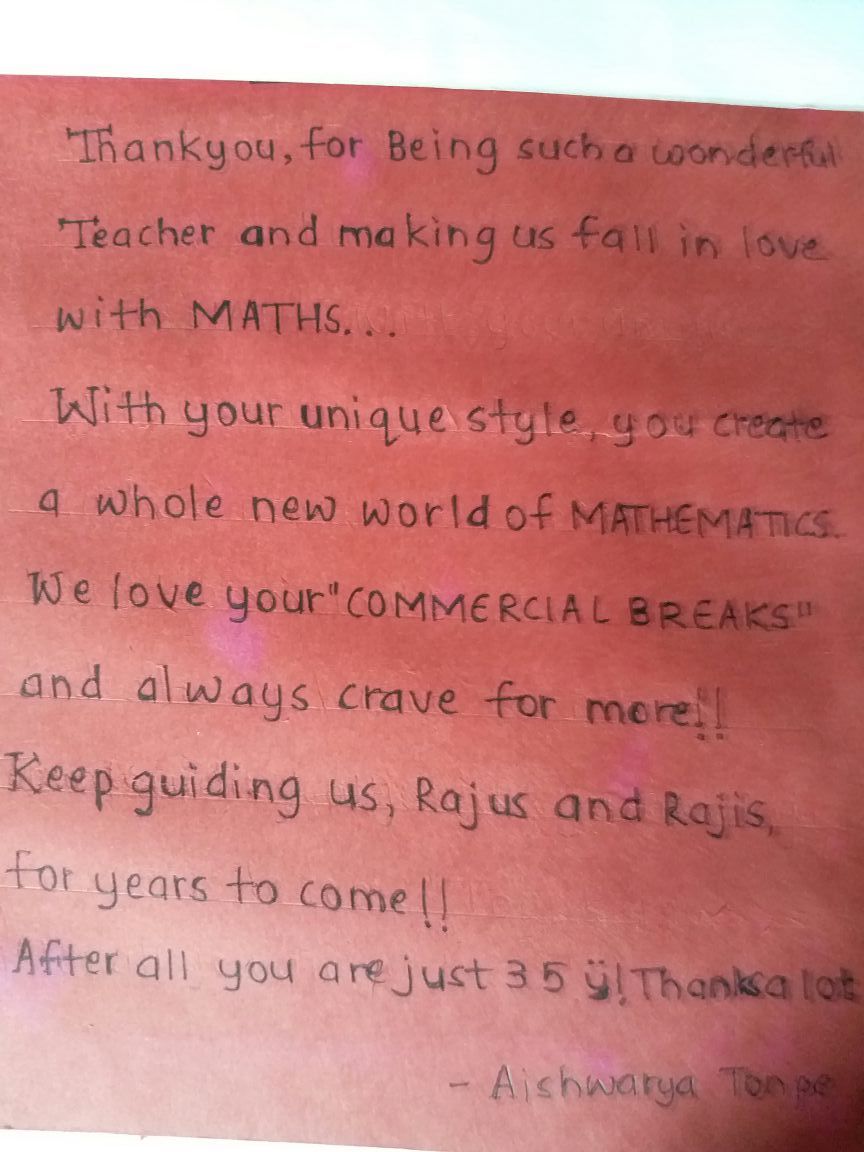 Thankyou, for Being such a woonderful
Teacher and making us fall in love
with MATHS...
With your unique style, you create
a whole new world of MATHEMATICS.
We love your "COMMERCIAL BREAKS"
and always crave for more!!
Keep guiding us, Rajus and Rajis,
for years to come!!
After all you are just 35 ÿ! Thanks a lot
- Aishwarya Tonpe